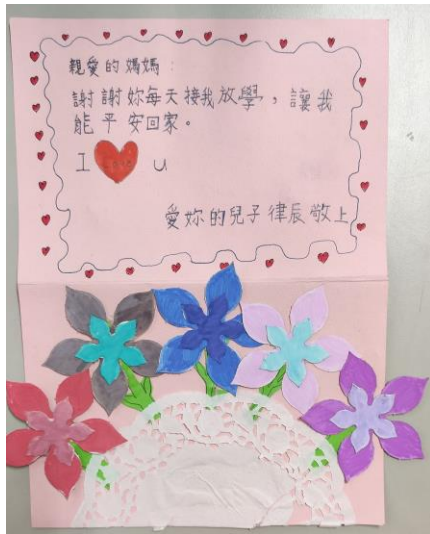 親愛的媽媽：
謝謝妳每天接我放學，讓我
能平安回家。
I love u
愛妳的兒子律辰敬上